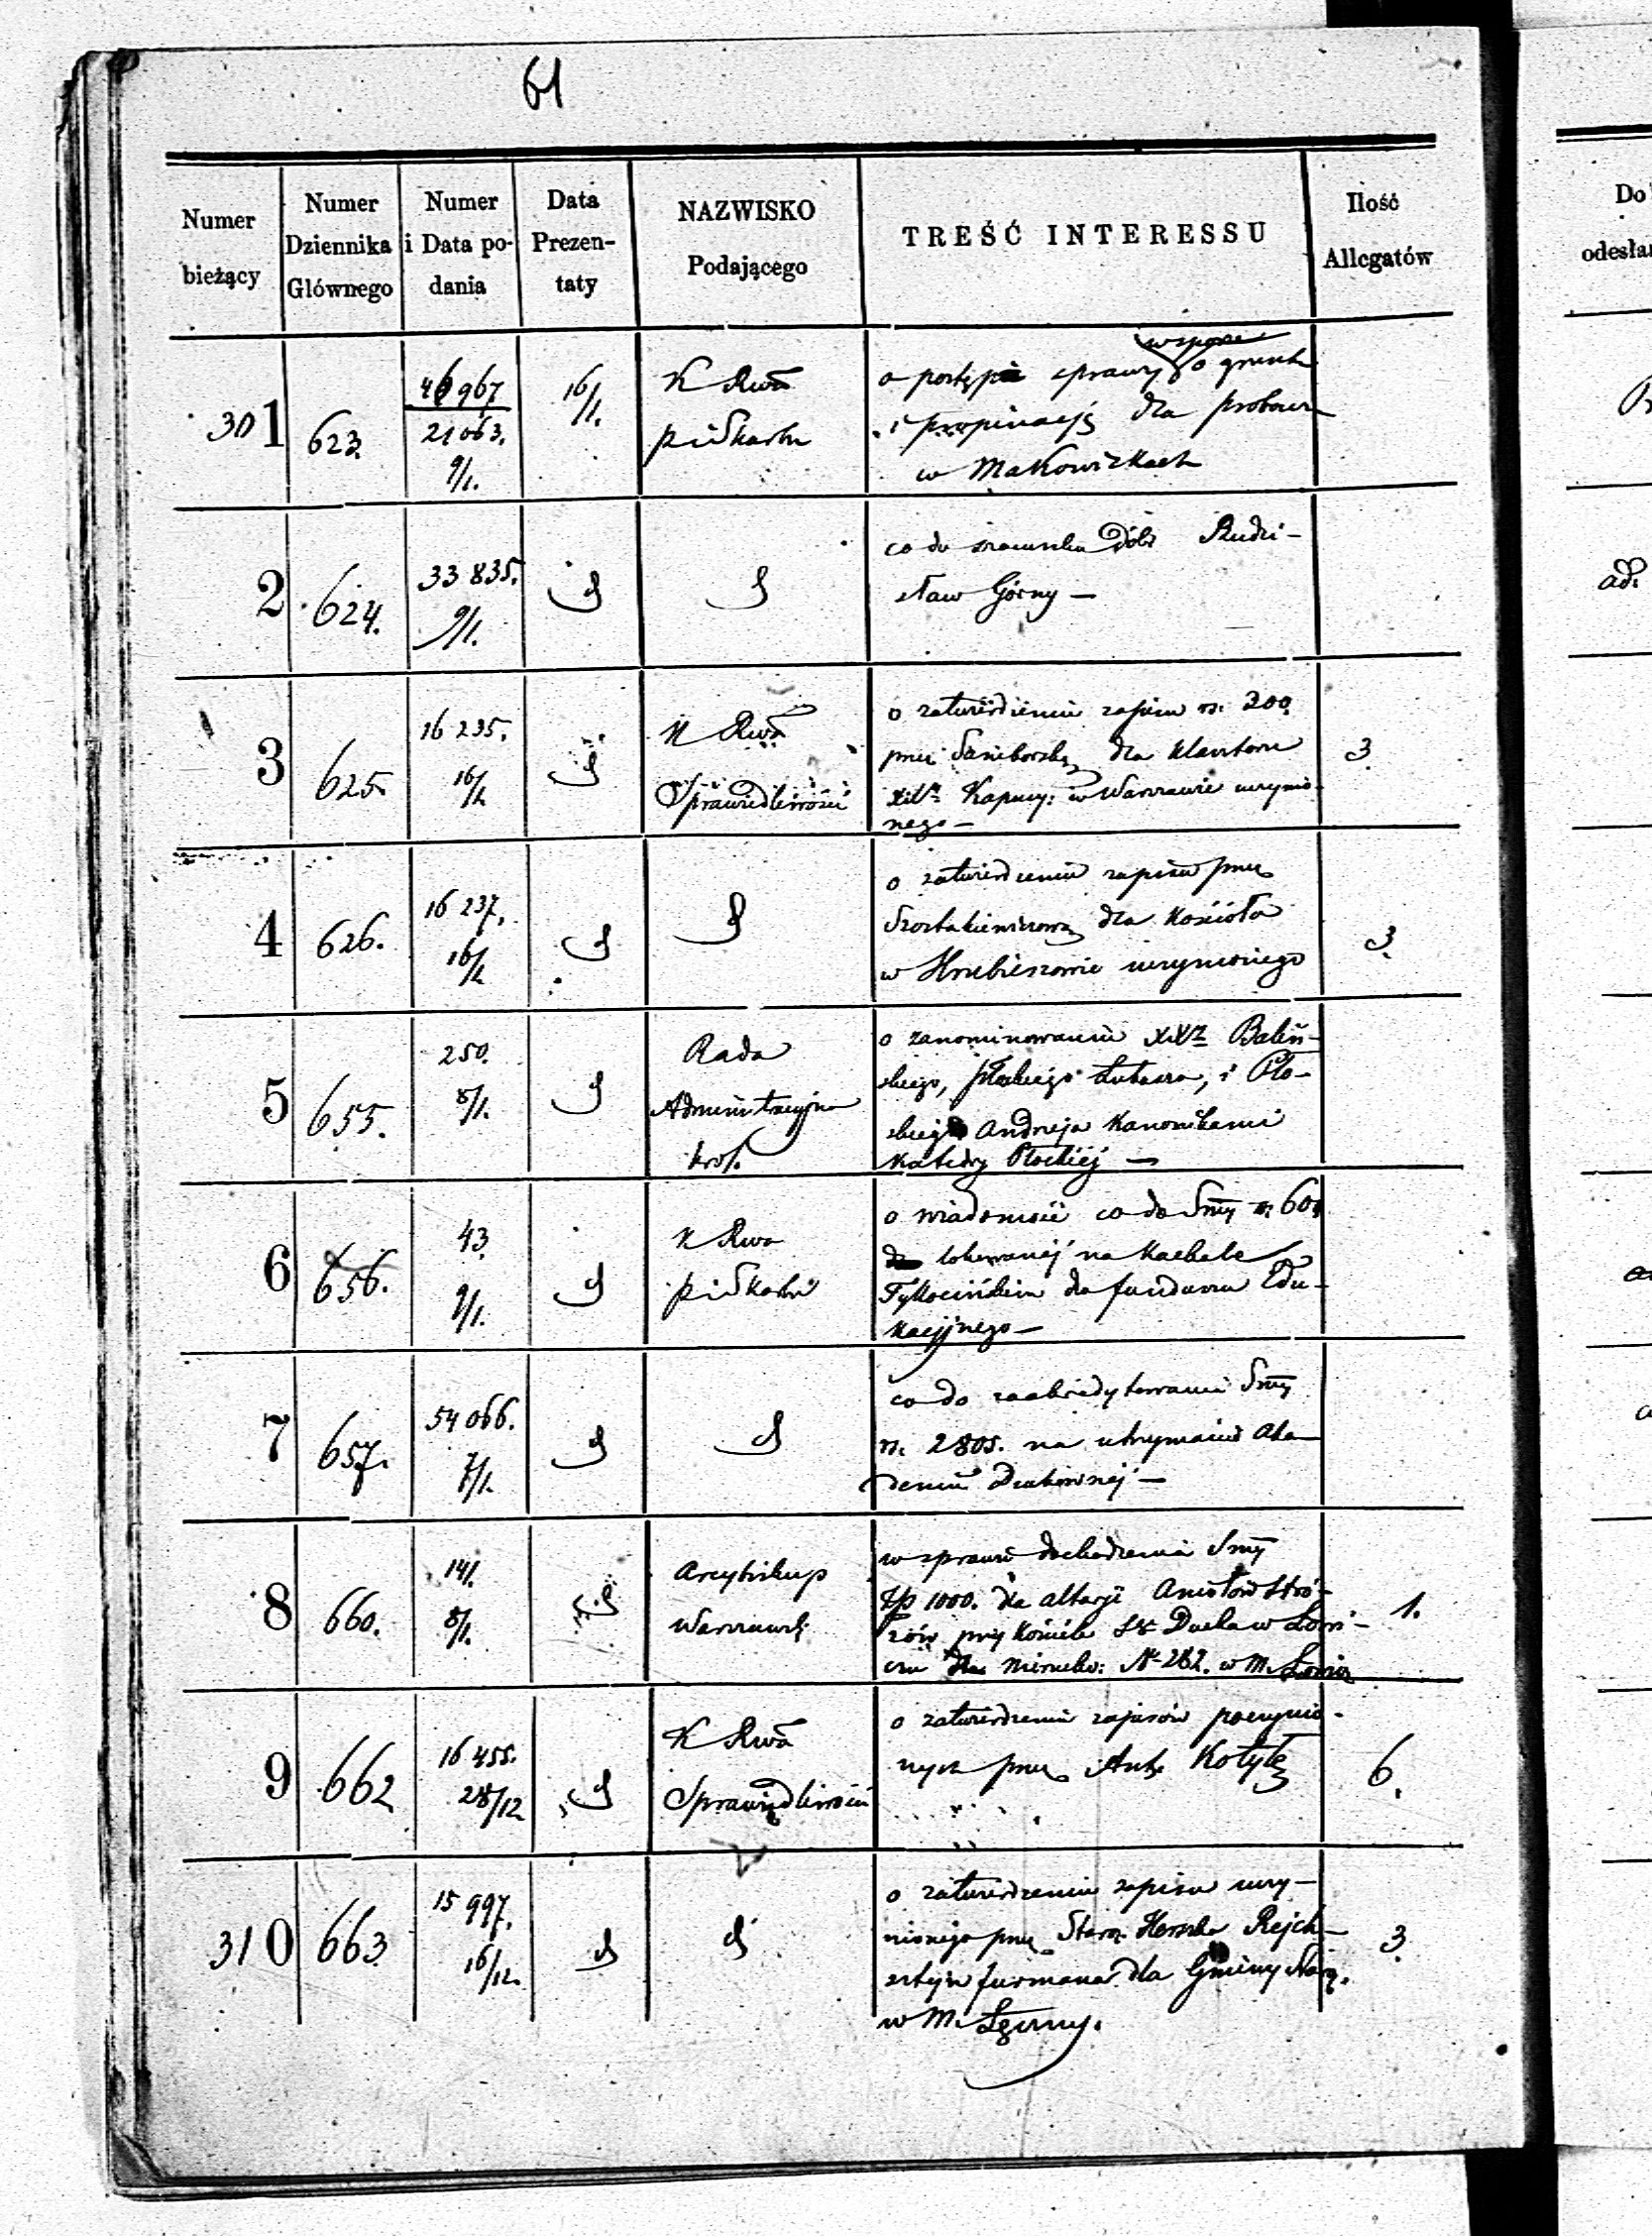 61
Numer bieżący
Numer Dziennika Głównego
Numer i Data podania
Data Prezentaty
NAZWISKO Podającego
TREŚĆ INTERESSU
Ilość Allegatów
Do
odesła
301
623.
46 967
21 063.
9/1.
16/1.
K Rwa
P i Skarbu
wsporze
o postępie sprawy o grunta
i propinacyę dla probos
w Makowiskach
2
624.
33 835.
9/1.
co do szacunku Dóbr Rudzi-
sław Górny —
ad.
3
625
16 235.
16/12
K Rwa
Sprawiedliwości
o zatwierdzenie zapisu rs. 300.
przez dla klasztoru
XXy Kapucy: w Warszawie uczynio-
nego —
3
4
626.
16 237.
16/12
o zatwierdzenie zapisu przez
dla Kościoła
w Hrubieszowie uczynionego
3.
5
655.
250.
8/1.
Rada
Administracyjna
Król.
o zanominowaniu XXy Baliń-
skiego, Łukasza, i Pło-
skiego Andrzeja Kanonikami
Katedry Płockiej —
6
656.
43.
9/1.
K Rwa
P i Skarbu
o wiadomość co do Summy rs. 60
lokowanej na Kahale
Tykocińskim dla funduszu Edu-
kacyjnego —
7
657.
54 066.
7/1.
co do zaakredytowania Summy
rs. 2805. na utrzymanie Aka-
demii Duchownej —
8
660.
141.
8/1.
Arcybiskup
Warszawski
w sprawie dochodzenia Summy
Złp 1000. dla altaryi Aniołów Stró-
żów przy Kościele Sgo Ducha w Łowi-
czu nierucho: No 282. w M. Łowicz
1.
9
662
16 455.
28/12
K Rwa
Sprawiedliwości
o zatwierdzenie zapisów poczynio-
nych przez Ant. Kotyłę
6.
310
663
15 997.
16/12.
o zatwierdzenie zapisu uczy-
nionego przez Staroz. Herszka Rejch-
sztejn furmana dla Gminy Staroz.
w M. Zgierzu.
3.